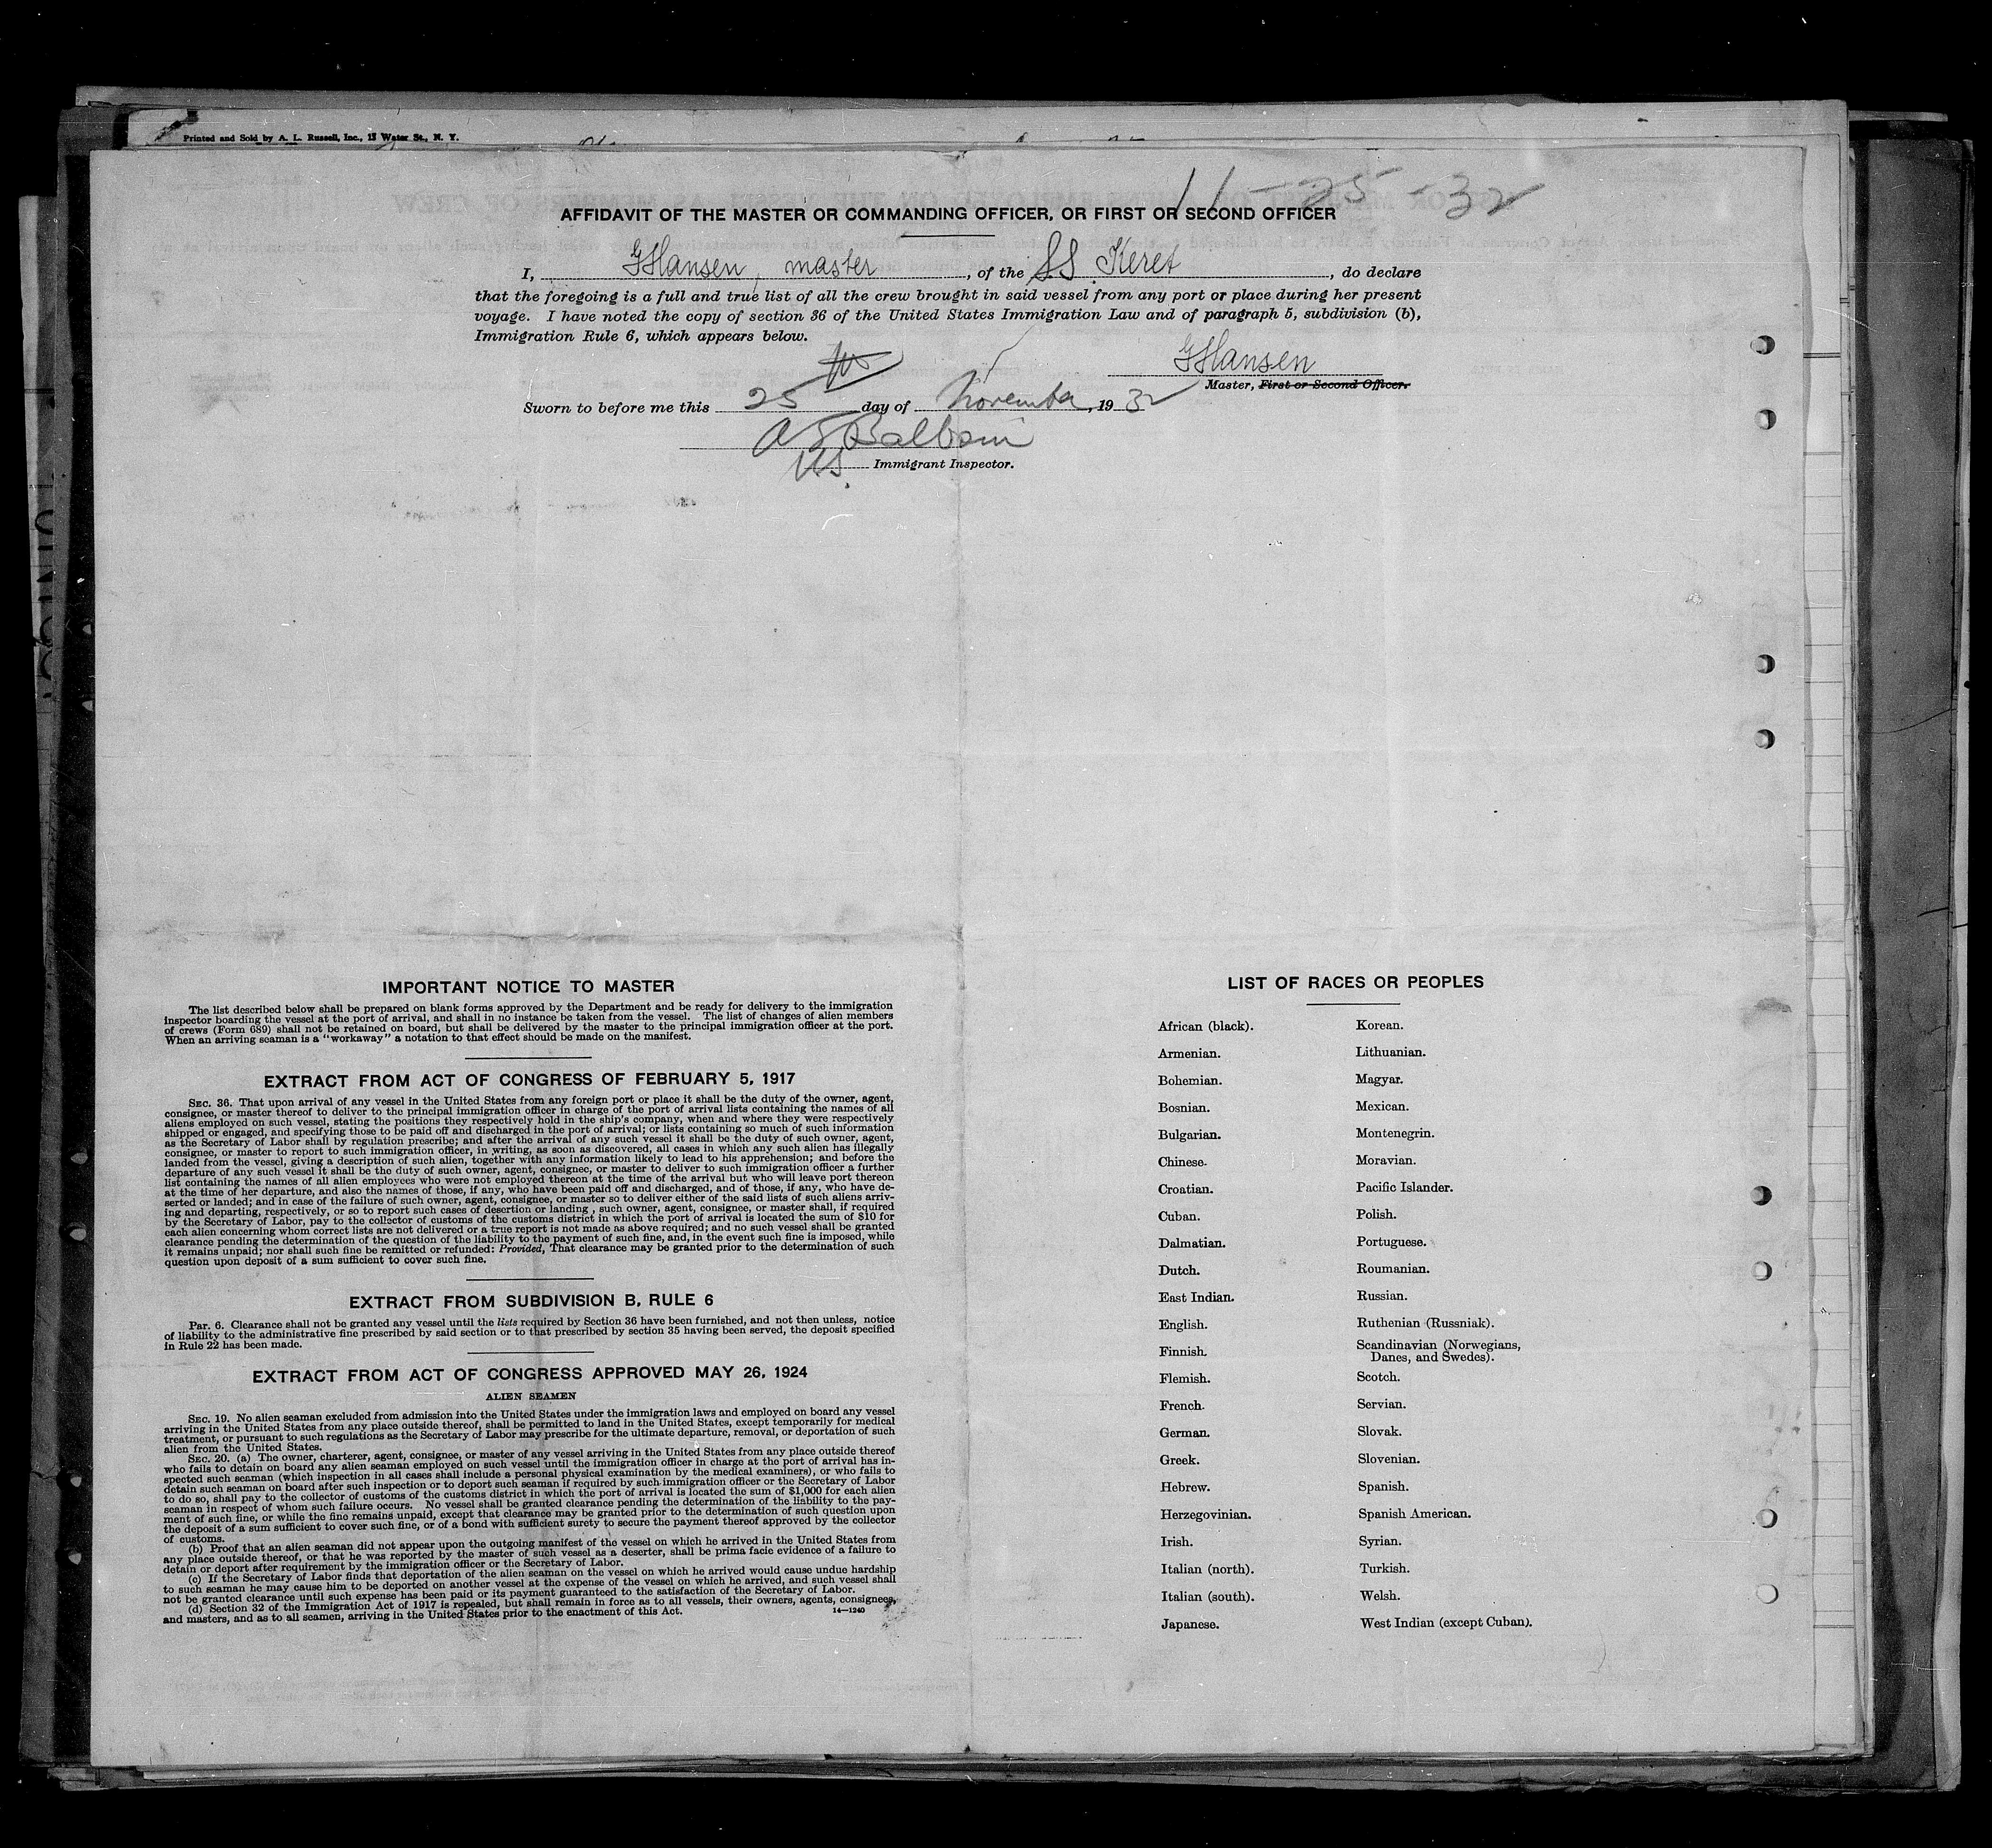 Printed and Sold by A. L. Russell, Inc., 15 Water St., N. Y.
11-25-32
AFFIDAVIT OF THE MASTER OR COMMANDING OFFICER, OR FIRST OR SECOND OFFICER
I, GHansen, master, of the SS Keret, do declare
that the foregoing is a full and true list of all the crew brought in said vessel from any port or place during her present
voyage. I have noted the copy of section 36 of the United States Immigration Law and of paragraph 5, subdivision (b),
Immigration Rule 6, which appears below.
GHansen
Master, First or Second Officer.
Sworn to before me this 25 day of November, 1932
Immigrant Inspector.
IMPORTANT NOTICE TO MASTER
The list described below shall be prepared on blank forms approved by the Department and be ready for delivery to the immigration
inspector boarding the vessel at the port of arrival, and shall in no instance be taken from the vessel. The list of changes of alien members
of crews (Form 689) shall not be retained on board, but shall be delivered by the master to the principal immigration officer at the port.
When an arriving seaman is a "workaway" a notation to that effect should be made on the manifest.
EXTRACT FROM ACT OF CONGRESS OF FEBRUARY 5, 1917
SEC. 36. That upon arrival of any vessel in the United States from any foreign port or place it shall be the duty of the owner, agent,
consignee, or master thereof to deliver to the principal immigration officer in charge of the port of arrival lists containing the names of all
aliens employed on such vessel, stating the positions they respectively hold in the ship's company, when and where they were respectively
shipped or engaged, and specifying those to be paid off and discharged in the port of arrival; or lists containing so much of such information
as the Secretary of Labor shall by regulation prescribe; and after the arrival of any such vessel it shall be the duty of such owner, agent,
consignee, or master to report to such immigration officer, in writing, as soon as discovered, all cases in which any such alien has illegally
landed from the vessel, giving a description of such alien, together with any information likely to lead to his apprehension; and before the
departure of any such vessel it shall be the duty of such owner, agent, consignee, or master to deliver to such immigration officer a further
list containing the names of all alien employees who were not employed thereon at the time of the arrival but who will leave port thereon
at the time of her departure, and also the names of those, if any, who have been paid off and discharged, and of those, if any, who have de-
serted or landed; and in case of the failure of such owner, agent, consignee, or master so to deliver either of the said lists of such aliens arriv-
ing and departing, respectively, or so to report such cases of desertion or landing , such owner, agent, consignee, or master shall, if required
by the Secretary of Labor, pay to the collector of customs of the customs district in which the port of arrival is located the sum of $10 for
each alien concerning whom correct lists are not delivered or a true report is not made as above required; and no such vessel shall be granted
clearance pending the determination of the question of the liability to the payment of such fine, and, in the event such fine is imposed, while
it remains unpaid; nor shall such fine be remitted or refunded: Provided, That clearance may be granted prior to the determination of such
question upon deposit of a sum sufficient to cover such fine.
EXTRACT FROM SUBDIVISION B, RULE 6
PAR. 6. Clearance shall not be granted any vessel until the lists required by Section 36 have been furnished, and not then unless, notice
of liability to the administrative fine prescribed by said section or to that prescribed by section 35 having been served, the deposit specified
in Rule 22 has been made.
EXTRACT FROM ACT OF CONGRESS APPROVED MAY 26, 1924
ALIEN SEAMEN
SEC. 19. No alien seaman excluded from admission into the United States under the immigration laws and employed on board any vessel
arriving in the United States from any place outside thereof, shall be permitted to land in the United States, except temporarily for medical
treatment, or pursuant to such regulations as the Secretary of Labor may prescribe for the ultimate departure, removal, or deportation of such
alien from the United States.
SEC. 20. (a) The owner, charterer, agent, consignee, or master of any vessel arriving in the United States from any place outside thereof
who fails to detain on board any alien seaman employed on such vessel until the immigration officer in charge at the port of arrival has in-
spected such seaman (which inspection in all cases shall include a personal physical examination by the medical examiners), or who fails to
detain such seaman on board after such inspection or to deport such seaman if required by such immigration officer or the Secretary of Labor
to do so, shall pay to the collector of customs of the customs district in which the port of arrival is located the sum of $1,000 for each alien
seaman in respect of whom such failure occurs. No vessel shall be granted clearance pending the determination of the liability to the pay-
ment of such fine, or while the fine remains unpaid, except that clearance may be granted prior to the determination of such question upon
the deposit of a sum sufficient to cover such fine, or of a bond with sufficient surety to secure the payment thereof approved by the collector
of customs.
(b) Proof that an alien seaman did not appear upon the outgoing manifest of the vessel on which he arrived in the United States from
any place outside thereof, or that he was reported by the master of such vessel as a deserter, shall be prima facie evidence of a failure to
detain or deport after requirement by the immigration officer or the Secretary of Labor.
(c) If the Secretary of Labor finds that deportation of the alien seaman on the vessel on which he arrived would cause undue hardship
to such seaman he may cause him to be deported on another vessel at the expense of the vessel on which he arrived, and such vessel shall
not be granted clearance until such expense has been paid or its payment guaranteed to the satisfaction of the Secretary of Labor.
(d) Section 32 of the Immigration Act of 1917 is repealed, but shall remain in force as to all vessels, their owners, agents, consignees,
and masters, and as to all seamen, arriving in the United States prior to the enactment of this Act. 14—1240
LIST OF RACES OR PEOPLES
African (black).
Armenian.
Bohemian.
Bosnian.
Bulgarian.
Chinese.
Croatian.
Cuban.
Dalmatian.
Dutch.
East Indian.
English.
Finnish.
Flemish.
French.
German.
Greek.
Hebrew.
Herzegovinian.
Irish.
Italian (north).
Italian (south).
Japanese.
Korean.
Lithuanian.
Magyar.
Mexican.
Montenegrin.
Moravian.
Pacific Islander.
Polish.
Portuguese.
Roumanian.
Russian.
Ruthenian (Russniak).
Scandinavian (Norwegians,
Danes, and Swedes).
Scotch.
Servian.
Slovak.
Slovenian.
Spanish.
Spanish American.
Syrian.
Turkish.
Welsh.
West Indian (except Cuban).